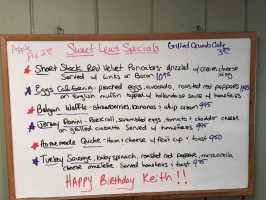 Apple Pie 2.95
Sweet Lew's Specials
Grilled Crumb Cake 3.95
Short Stack Red Velvet Pancakes - drizzled w/ cream cheese icing
Served w/ Links or Bacon 10.95
Eggs California - poached eggs, avocado, roasted red peppers 11.95
on English muffin topped w/ hollandaise served w/ homefries
Belgian Waffle - strawberries, bananas & whip cream 9.95
Jersey Panini - Pork roll, scrambled eggs, tomato & cheddar cheese
on grilled ciabatta Served w/ homefries 9.95
Homemade Quiche - Ham & cheese w/ fruit cup & toast 9.50
Turkey Sausage, baby spinach, roasted red pepper, mozzarella
cheese omelette Served w/ homefries & toast 9.95
Happy Birthday Keith!!